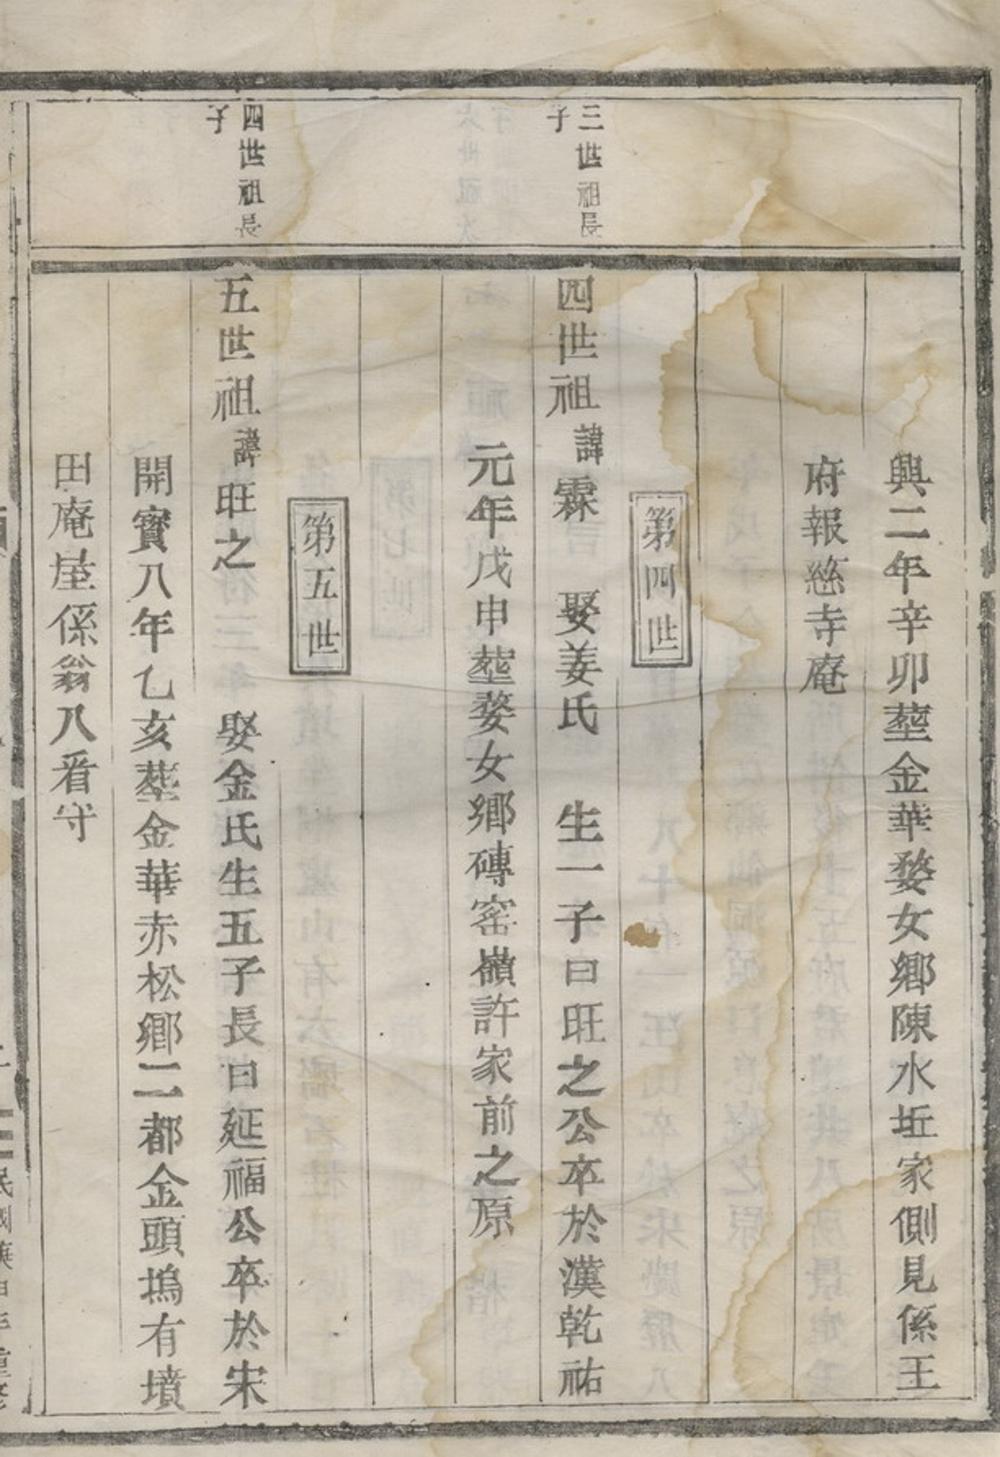 興二年辛卯塟金華婺女鄉陳水坵家側見係王
府報慈寺庵
第四世
三世祖長
子
四世祖諱霖　娶姜氏　生一子曰旺之公卒於漢乾祐
元年戊申塟婺女鄉磚窑嶺許家前之原
第五世
四世祖長
子
五世祖諱旺之　娶金氏生五子長曰延福公卒於宋
開寳八年乙亥塟金華赤松鄉二都金頭塢有墳
田庵屋係翁八看守